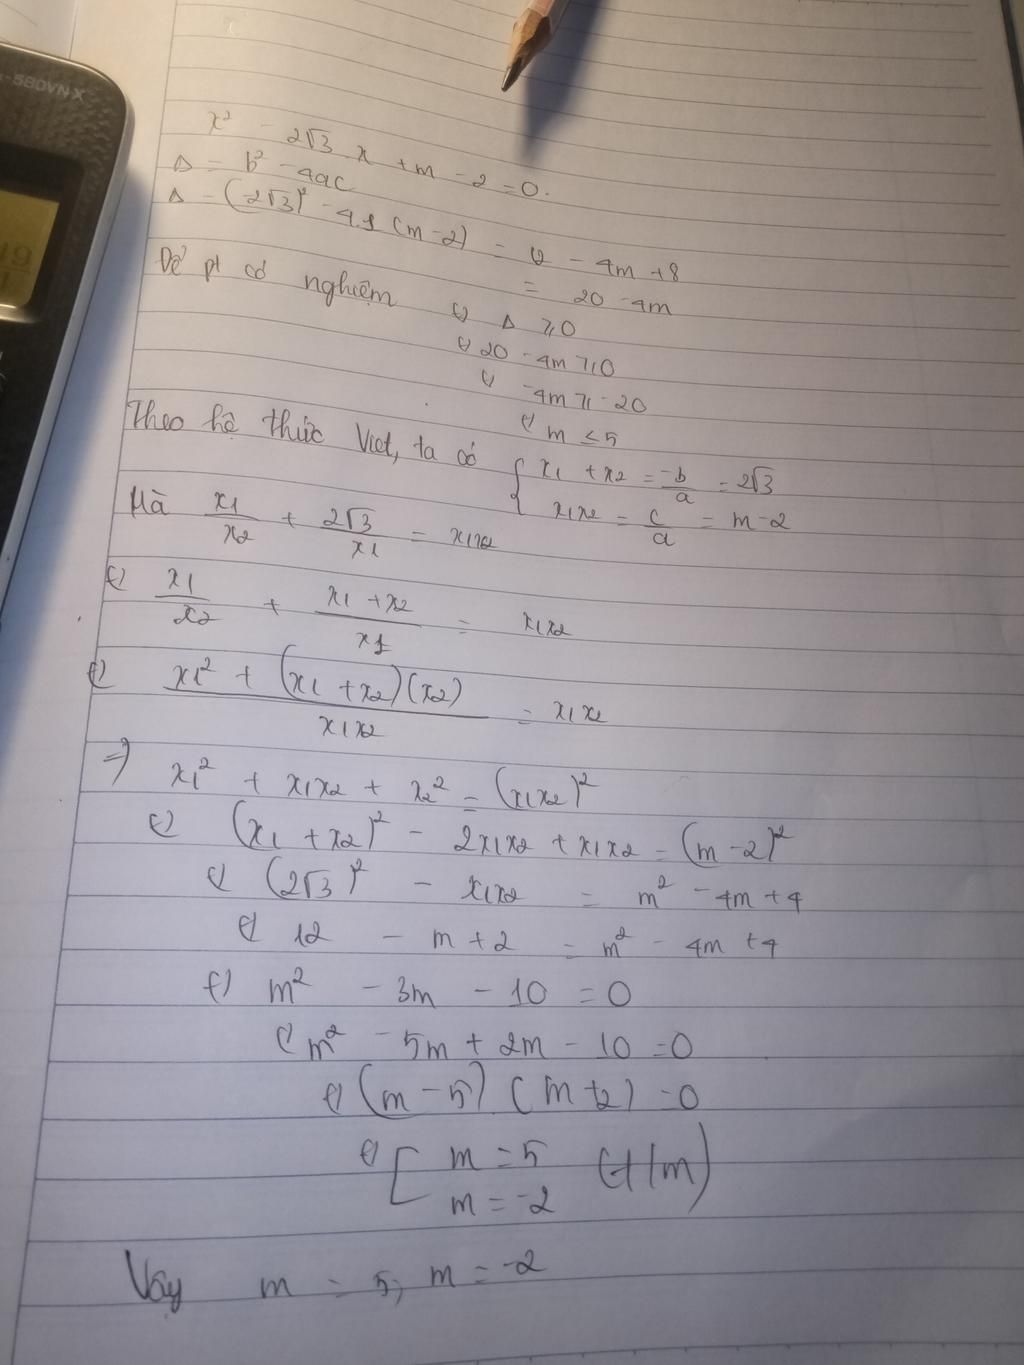 580VN X
x² - 2√3 x + m - 2 = 0.
Δ = b² - 4ac
Δ = (2√3)² - 4.1 (m - 2) = 12 - 4m + 8
= 20 - 4m
Để pt có nghiệm ⇔ Δ ≥ 0
⇔ 20 - 4m ≥ 0
⇔ -4m ≥ -20
⇔ m ≤ 5
Theo hệ thức Viet, ta có { x1 + x2 = -b/a = 2√3
x1x2 = c/a = m - 2
Mà x1/x2 + 2√3/x1 = x1x2
⇔ x1/x2 + (x1 + x2)/x1 = x1x2
⇔ (x1² + (x1 + x2)(x2))/(x1x2) = x1x2
⇒ x1² + x1x2 + x2² = (x1x2)²
⇔ (x1 + x2)² - 2x1x2 + x1x2 = (m - 2)²
⇔ (2√3)² - x1x2 = m² - 4m + 4
⇔ 12 - m + 2 = m² - 4m + 4
⇔ m² - 3m - 10 = 0
⇔ m² - 5m + 2m - 10 = 0
⇔ (m - 5) (m + 2) = 0
⇔ [ m = 5 (t/m)
m = -2
Vậy m = 5; m = -2